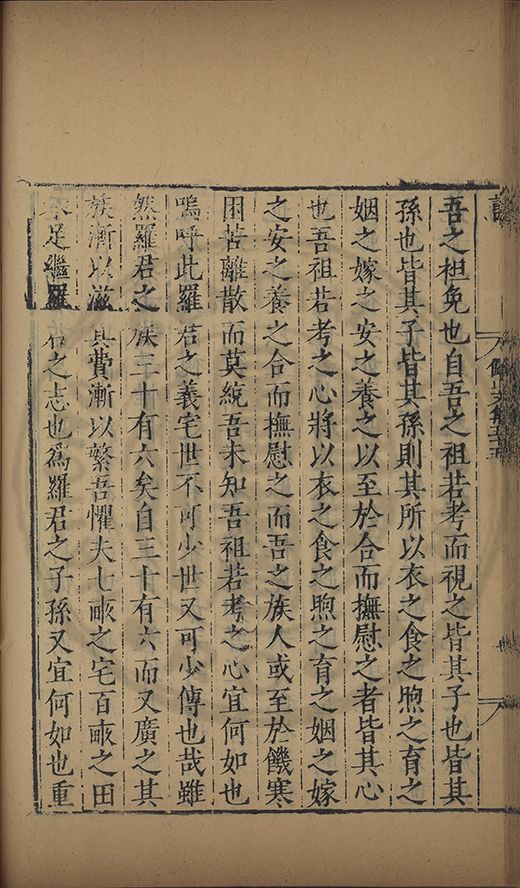 吾之袒免也自吾之祖若考而視之皆其子也皆其
孫也皆其子皆其孫則其所以衣之食之煦之育之
姻之嫁之安之養之以至於合而撫慰之者皆其心
也吾祖若考之心將以衣之食之煦之育之姻之嫁
之安之養之合而撫慰之而吾之族人或至於饑寒
困苦離散而莫統吾未知吾祖若考之心宜何如也
嗚呼此羅君之義宅世不可少世又可少傳也哉雖
然羅君之族三十有六矣自三十有六而又廣之其
族漸以滋其費漸以繁吾懼夫七畝之宅百畝之田
不足繼羅君之志也爲羅君之子孫又宜何如也重